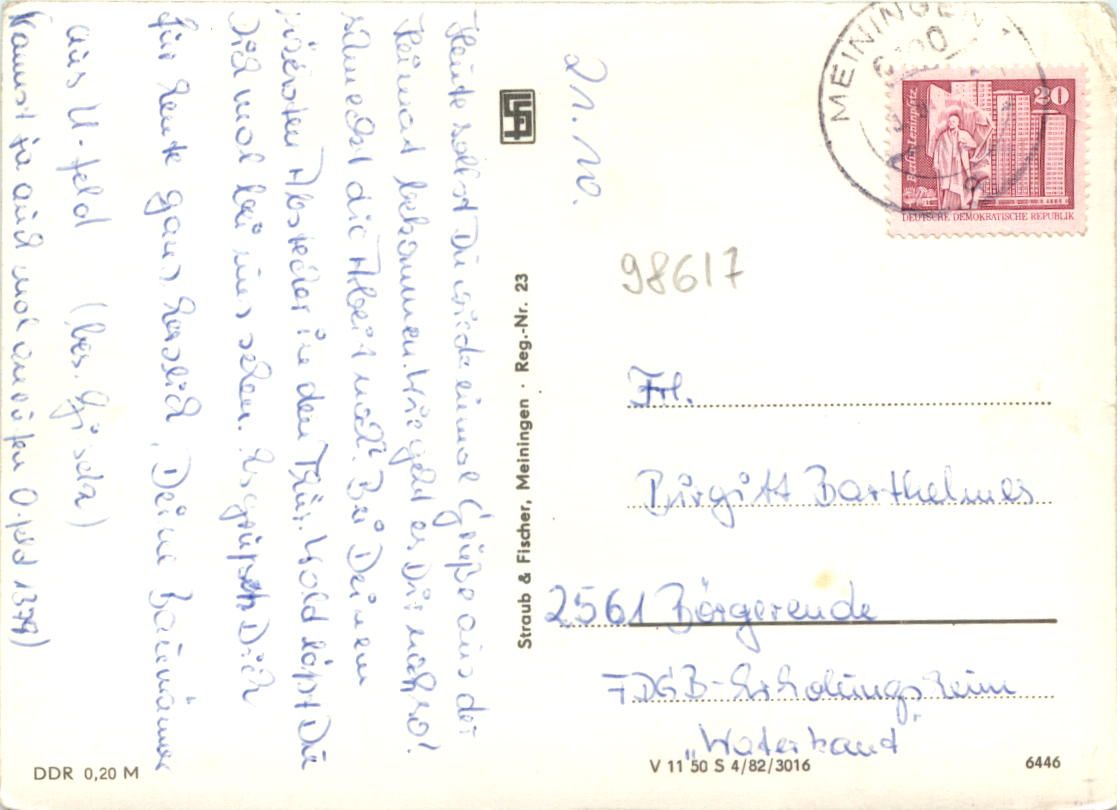 21. 10.
Heute sollst Du wieder einmal Grüße aus der
Heimat bekommen. Wie geht es Dir noch so?
schmeckt die Arbeit noch? Bei Deinem
nächsten Abstecher in den Thür. Wald läßt Du
Dich mal bei uns sehen. Es grüßen Dich
für heute ganz herzlich, Deine
aus U-feld (bes. Gisela)
Kannst ja auch mal anrufen O.feld 1379)
Straub & Fischer, Meiningen · Reg.-Nr. 23
MEININGEN 1
Berlin, Leninplatz
20
DEUTSCHE DEMOKRATISCHE REPUBLIK
98617
Frl.
Burgitt Barthelmes
2561 Börgerende
FDGB-Erholungsheim
„Waterkant"
DDR 0,20 M
V 11 50 S 4/82/3016
6446